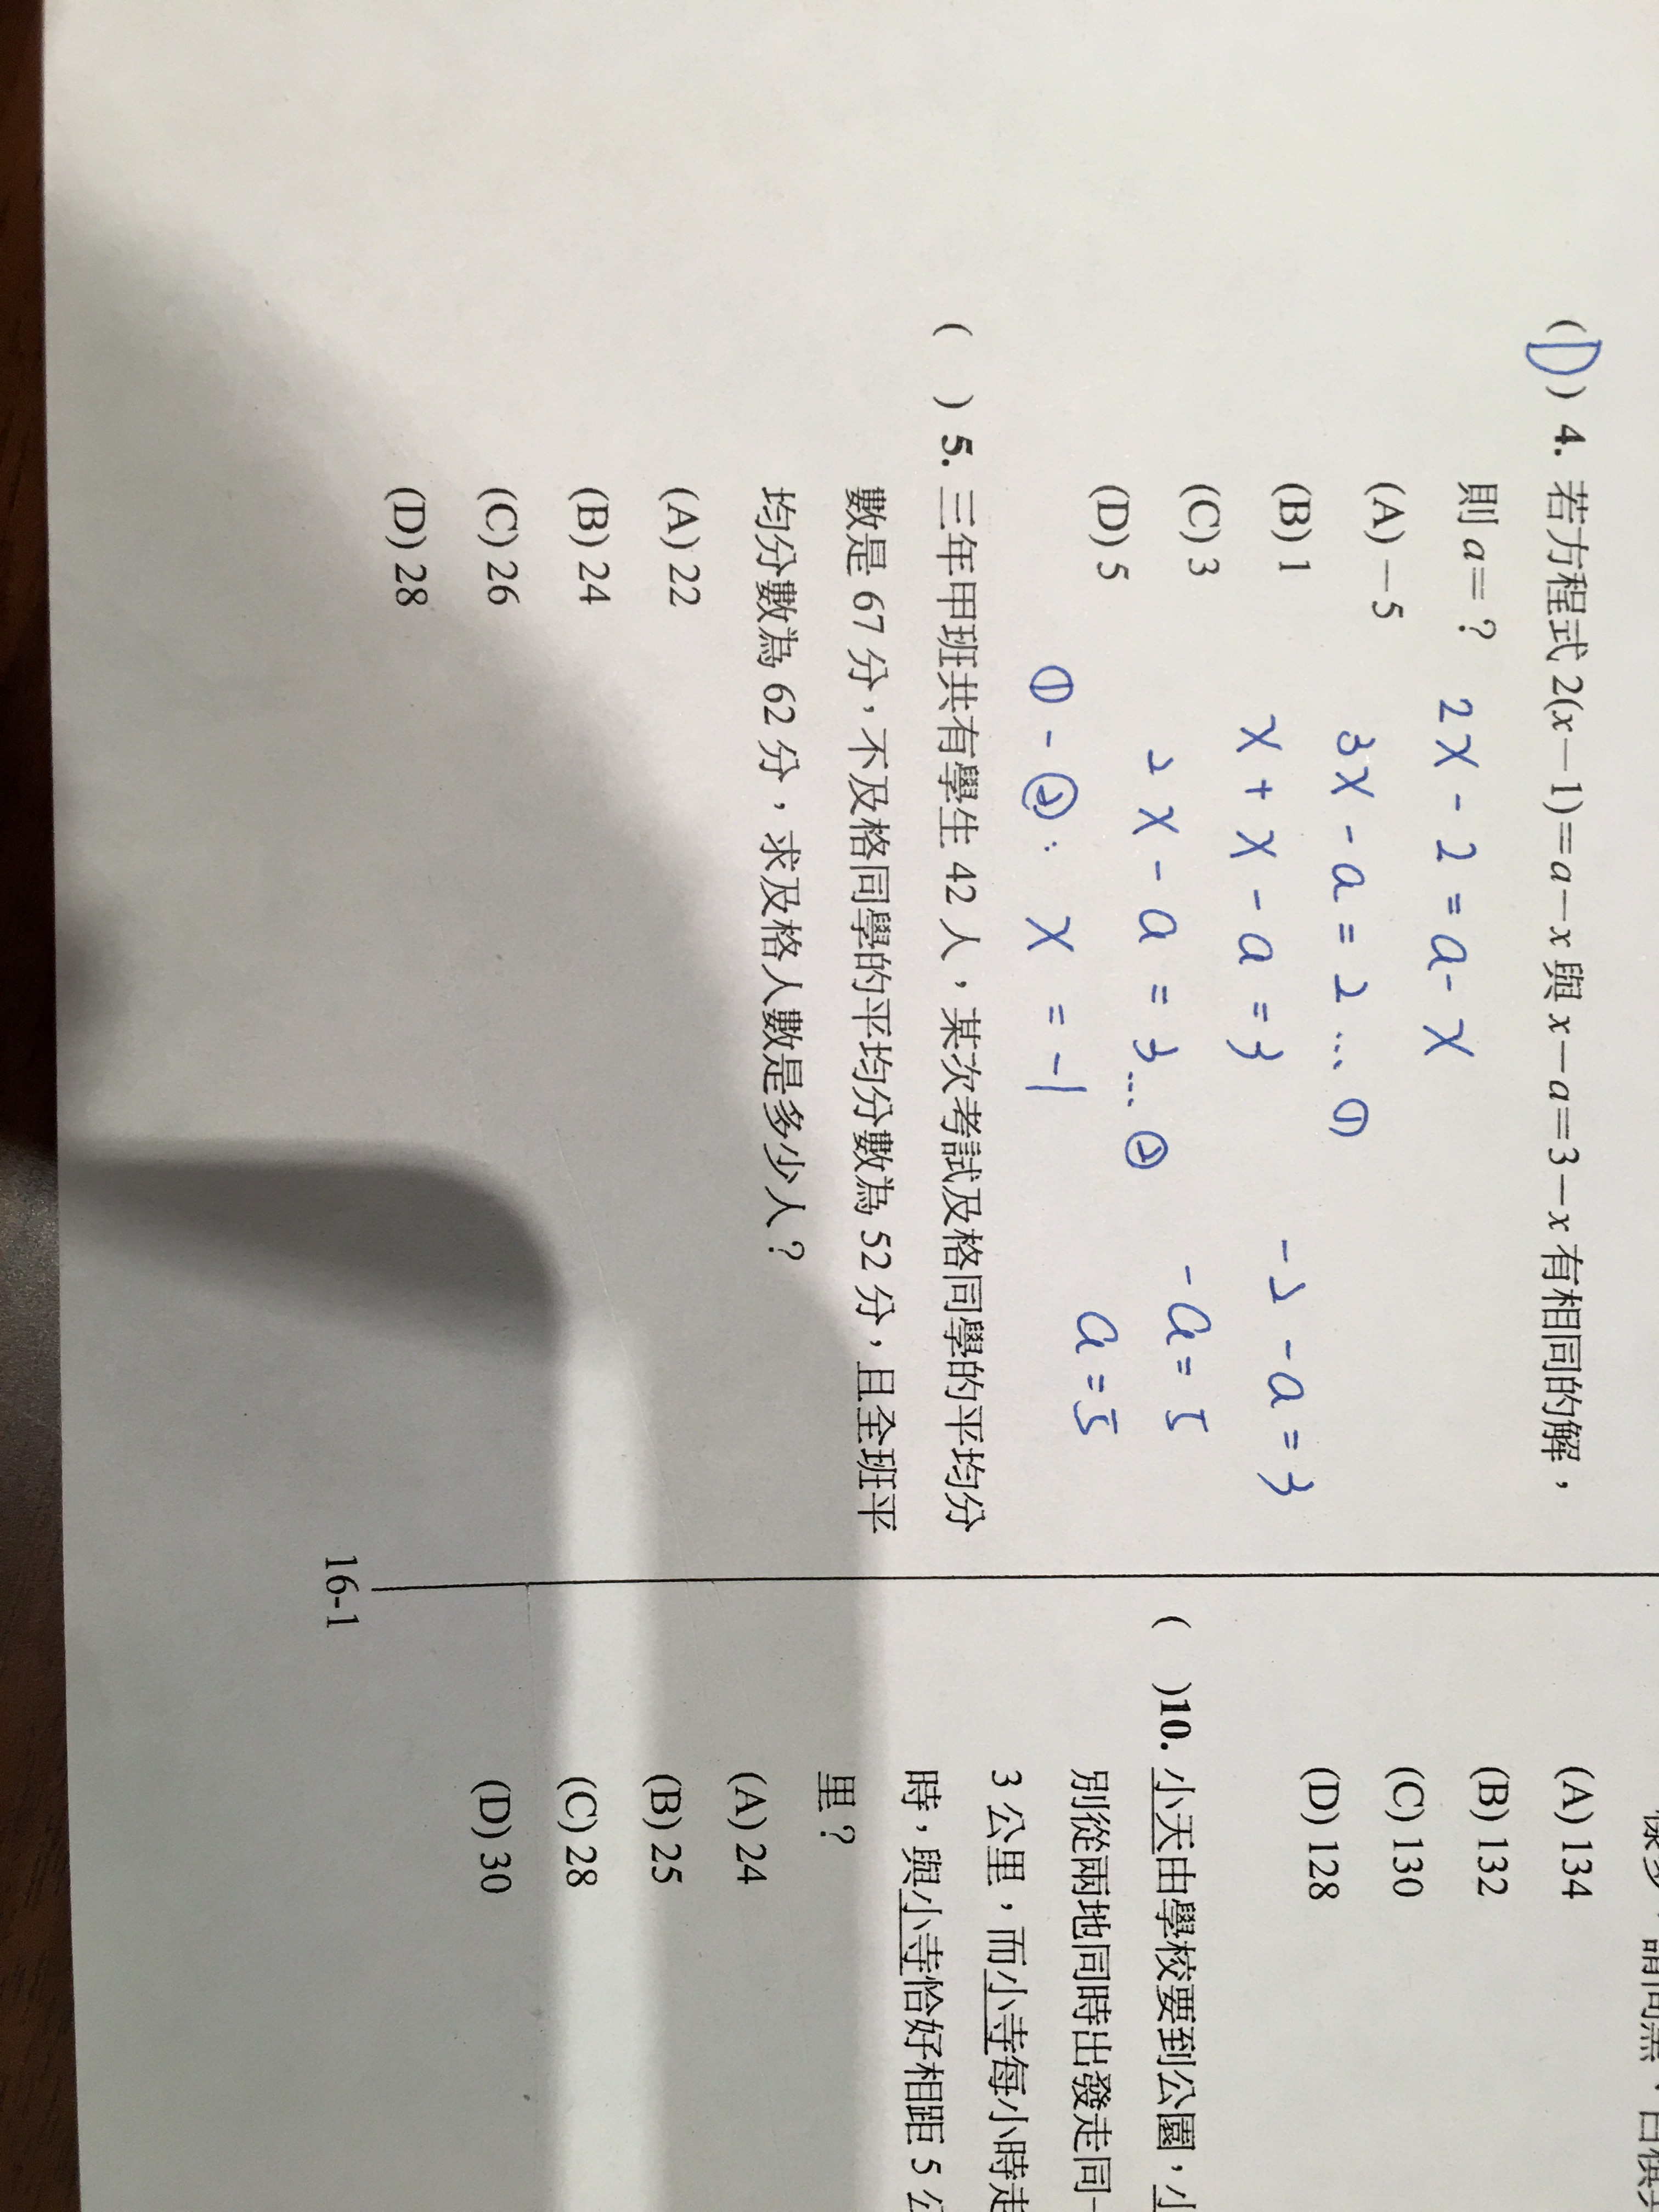 (D) 4. 若方程式 2(x－1)=a－x 與 x－a=3－x 有相同的解，
則 a=？
2x - 2 = a - x
(A) －5
3x - a = 2 … ①
(B) 1
x + x - a = 3
-2 - a = 3
(C) 3
2x - a = 3 … ②
-a = 5
(D) 5
① - ② : x = -1
a = 5
( ) 5. 三年甲班共有學生 42 人，某次考試及格同學的平均分
數是 67 分，不及格同學的平均分數為 52 分，且全班平
均分數為 62 分，求及格人數是多少人？
(A) 22
(B) 24
(C) 26
(D) 28
16-1
(A) 134
(B) 132
(C) 130
(D) 128
( )10. 小天由學校要到公園，小
別從兩地同時出發走同一
3 公里，而小寺每小時走
時，與小寺恰好相距 5 公
里？
(A) 24
(B) 25
(C) 28
(D) 30